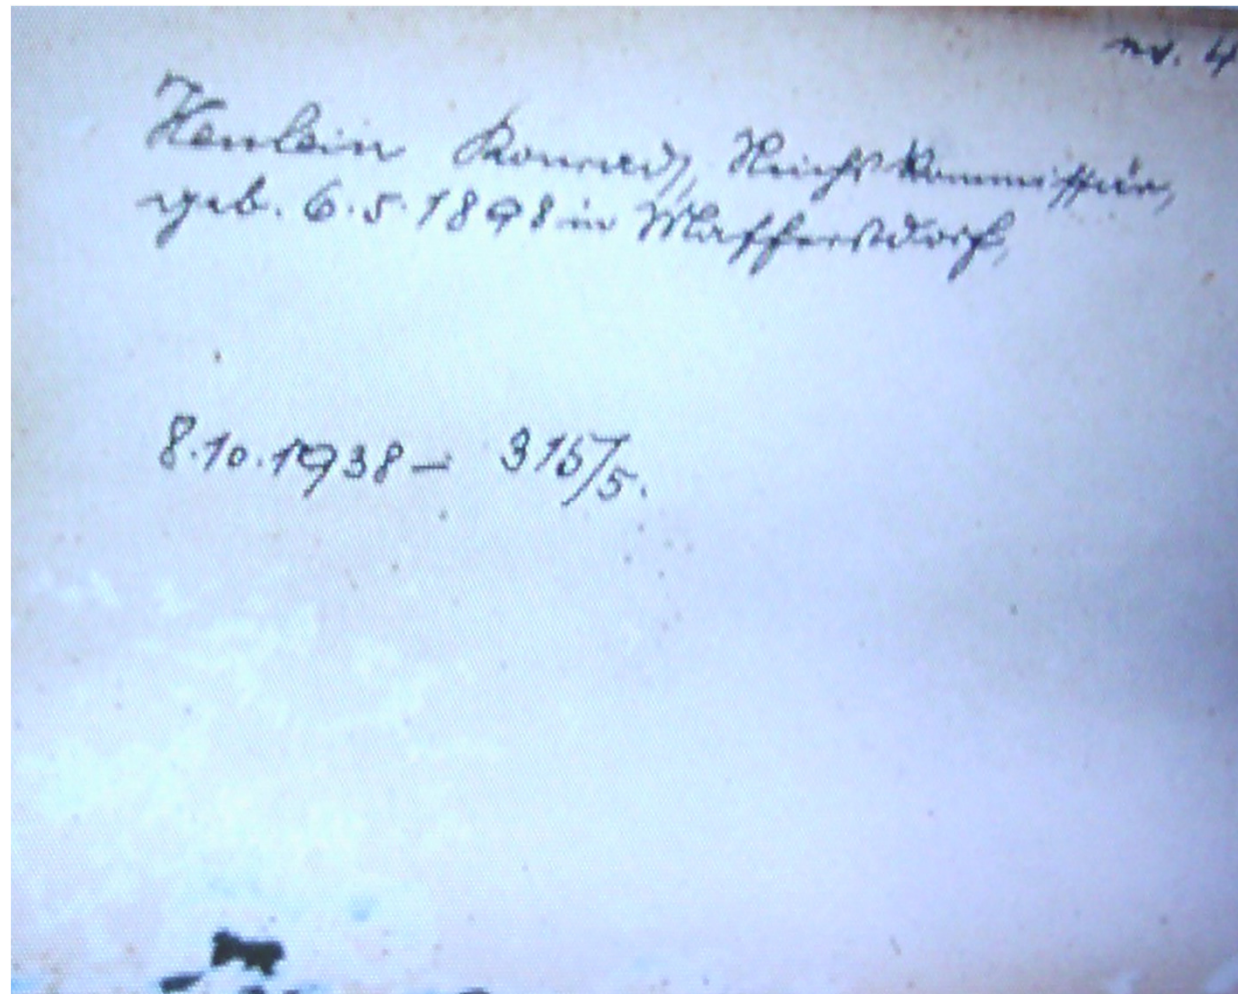 nv. 4
Henlein Konrad, Reichskommissär,
geb. 6.5.1898 in Maffersdorf,
8.10.1938 – 315/5.